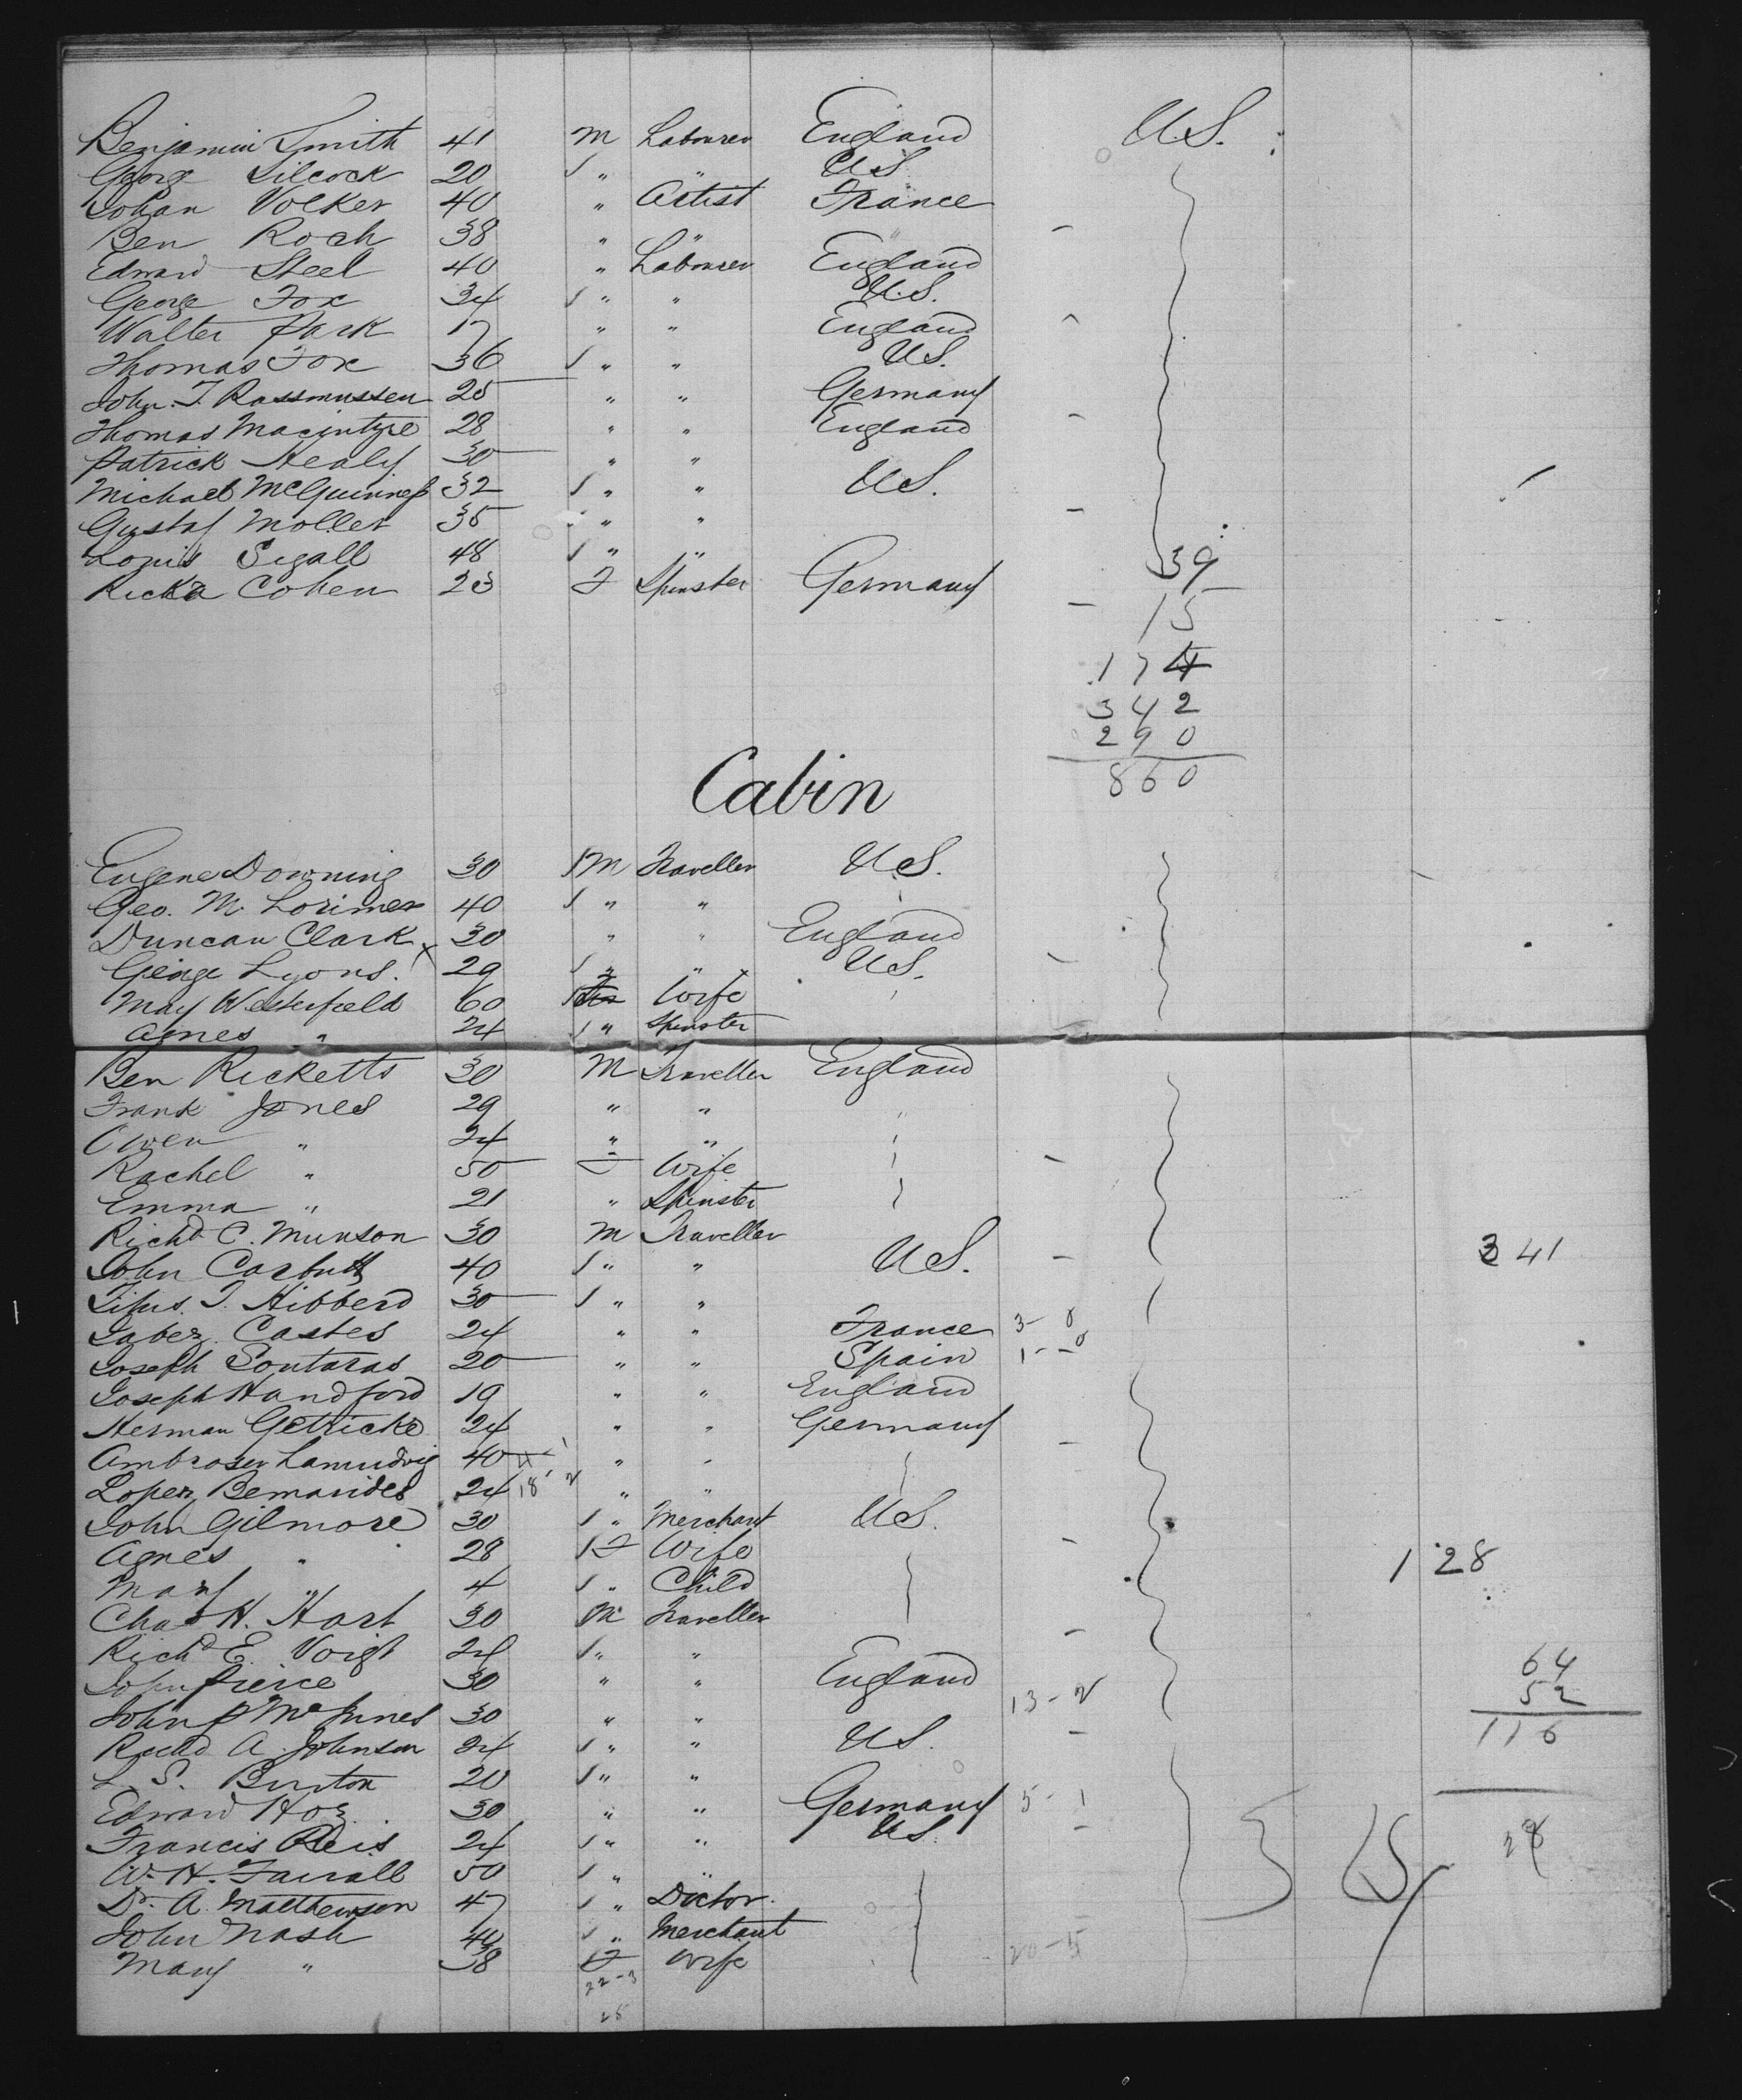 Benjamin Smith 41 M Labourer England U.S.
George Silcock 20 " " U.S
Johan Volker 40 " Artist France
Ben Roch 38 " " "
Edward Steel 40 " Labourer England
George Fox 34 " " U.S.
Walter Park 17 " " England
Thomas Fox 36 " " U.S.
John. T. Rassmussen 25 " " Germany
Thomas Macintyre 28 " " England
Patrick Healy 30 " "
Michael McGuinness 32 " " U.S.
Gustaf Moller 35 " "
Louis Segall 48 " " 39
Ricka Cohen 23 F Spinster Germany
15
174
342
290
860
Cabin
Eugene Downing 30 M Traveller U.S.
Geo. M. Lorimer 40 " "
Duncan Clark 30 " " England
George Lyons. 29 " " U.S.
May Westerfield 60 F Wife
Agnes " 24 " Spinster
Ben Ricketts 30 M Traveller England
Frank Jones 29 " " "
Owen " 24 " "
Rachel " 50 F Wife
Emma " 21 " Spinster
Richd C. Munson 30 M Traveller
John Carbutt 40 " " U.S. 341
Titus. T. Hibberd 30 " "
Jabez Castes 24 " " France 3-0
Joseph Soutaras 20 " " Spain 1-0
Joseph Handford 19 " " England
Herman Getricke 24 " " Germany
40 " "
Lopez Bemarides 24 18-2 " "
John Gilmore 30 " Merchant U.S.
Agnes " 28 F Wife 128
Mary " 4 " Child
Chas H. Hart 30 M Traveller
Richd E. Voigt 24 " "
John Pierce 30 " " England 13-2 64
John P McInnes 30 " " 52
Richd A. Johnson 24 " " U.S. 116
L. S. Burton 20 " "
Edward Hoz 30 " " Germany 5-1
Francis Reis 24 " " U.S. 28
W. H. Fairall 50 " "
Dr. A. Matthewson 47 " Doctor.
John Nash 40 " Merchant
Mary " 38 F Wife 20-5
22-3
25